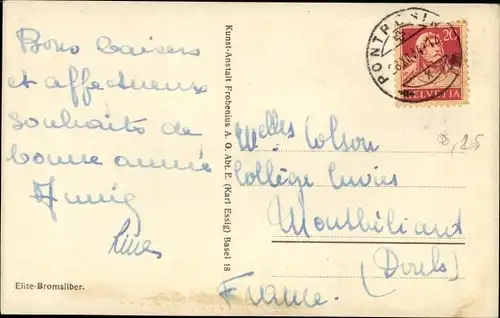 Bons baisers
et affectueux
souhaits de
bonne année
Elite-Bromsilber.
Kunst-Anstalt Frobenius A. G. Abt. E. (Karl Essig) Basel 18
PONTRESINA
20
HELVETIA
0,25
Melles Colson
Collège Cuvier
Montbéliard
(Doubs)
France.